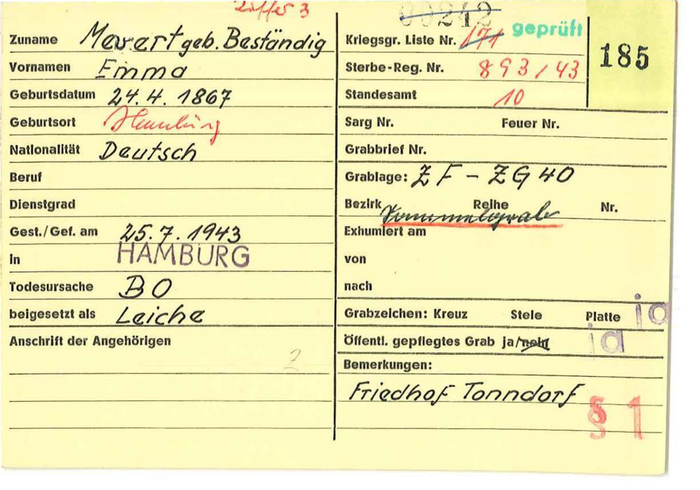 Ziffer 3
00242
geprüft
185
Zuname Mevert geb. Beständig
Vornamen Emma
Geburtsdatum 24.4.1867
Geburtsort Hamburg
Nationalität Deutsch
Beruf
Dienstgrad
Gest./Gef. am 25.7.1943
in HAMBURG
Todesursache BO
beigesetzt als Leiche
Anschrift der Angehörigen
2
Kriegsgr. Liste Nr. 171
Sterbe-Reg. Nr. 893/43
Standesamt 10
Sarg Nr. Feuer Nr.
Grabbrief Nr.
Grablage: ZF-ZG 40
Bezirk Reihe Nr.
Sammelgrab
Exhumiert am
von
nach
Grabzeichen: Kreuz Stele Platte ja
Öffentl. gepflegtes Grab ja/nein ja
Bemerkungen:
Friedhof Tonndorf
§ 1